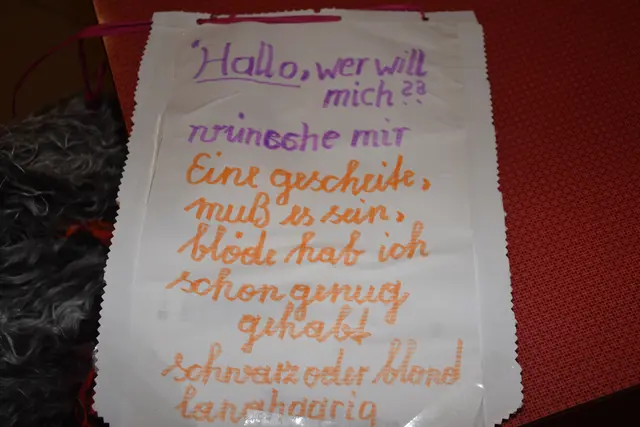 Hallo, wer will
mich??
wünsche mir
Eine gescheite,
muß es sein,
blöde hab ich
schon genug
gehabt
schwarz oder blond
langhaarig